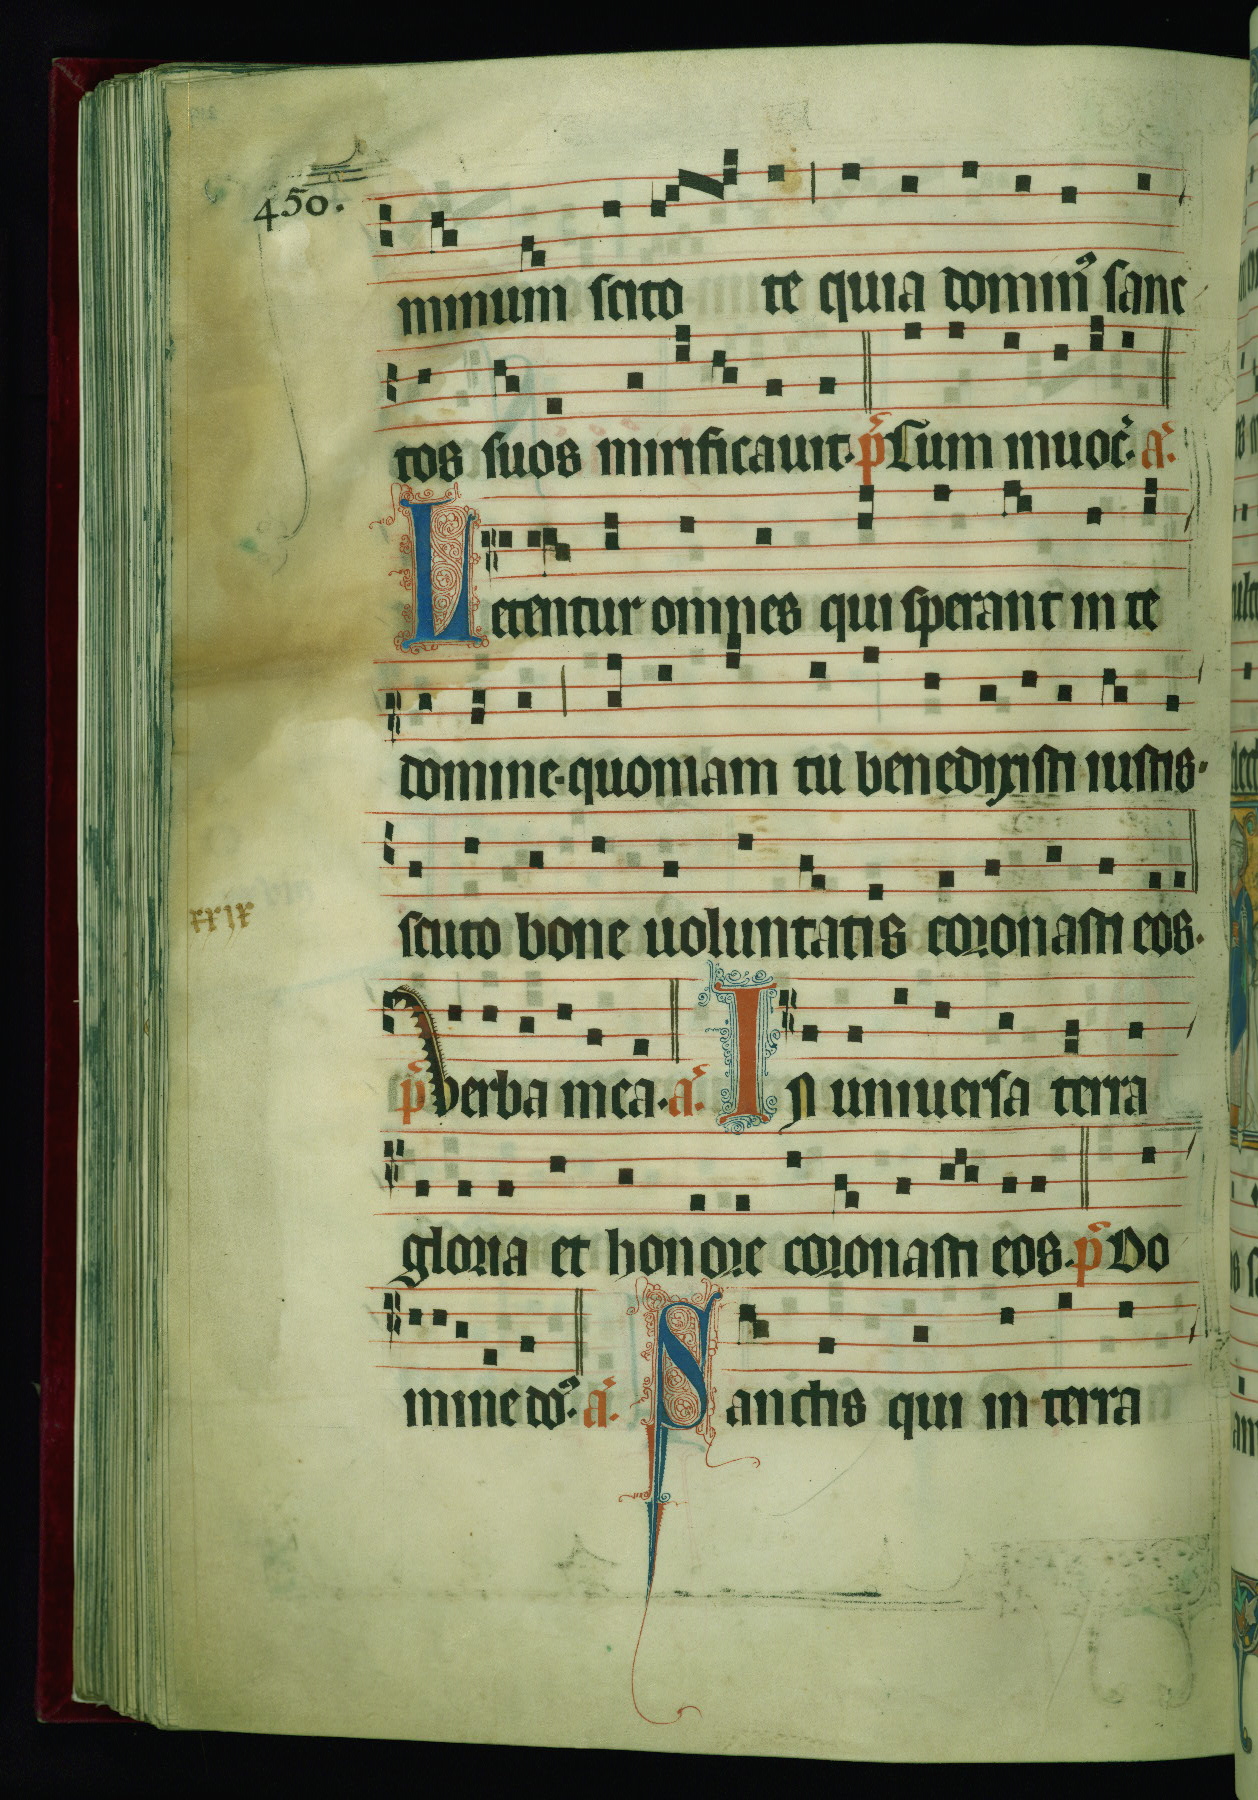 450.
minum scito te quia domin⁹ sanc
tos suos mirificauit. p̃ Cum inuoc̃. a.̃
Letentur omnes qui sperant in te
domine. quoniam tu benedixisti iustis.
scuto bone uoluntatis coronasti eos.
xxix
p̃ Verba mea. a.̃ In uniuersa terra
gloria et honore coronasti eos. p̃ Do
mine do⁹. a.̃ Sanctis qui in terra